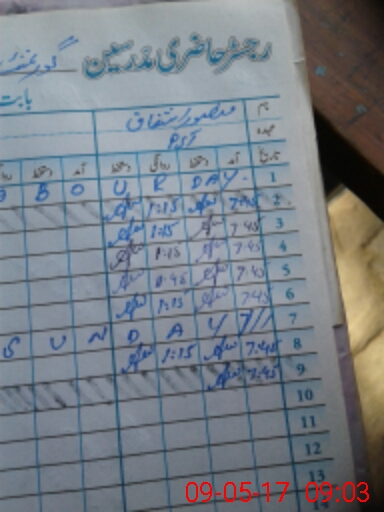 رجسٹر حاضری مدرسین
گورنمنٹ
بابت
نام منصور اشفاق
عہدہ PST
تاریخ آمد دستخط روانگی دستخط آمد دستخط
1 B O U R DAY
2 7:45 1:15
3 7:45 1:15
4 7:45 1:15
5 7:45 1:45
6 7:45 1:15
7 S U N D A Y
8 7:45 1:15
9 7:45
10
11
12
13
14
09-05-17 09:03